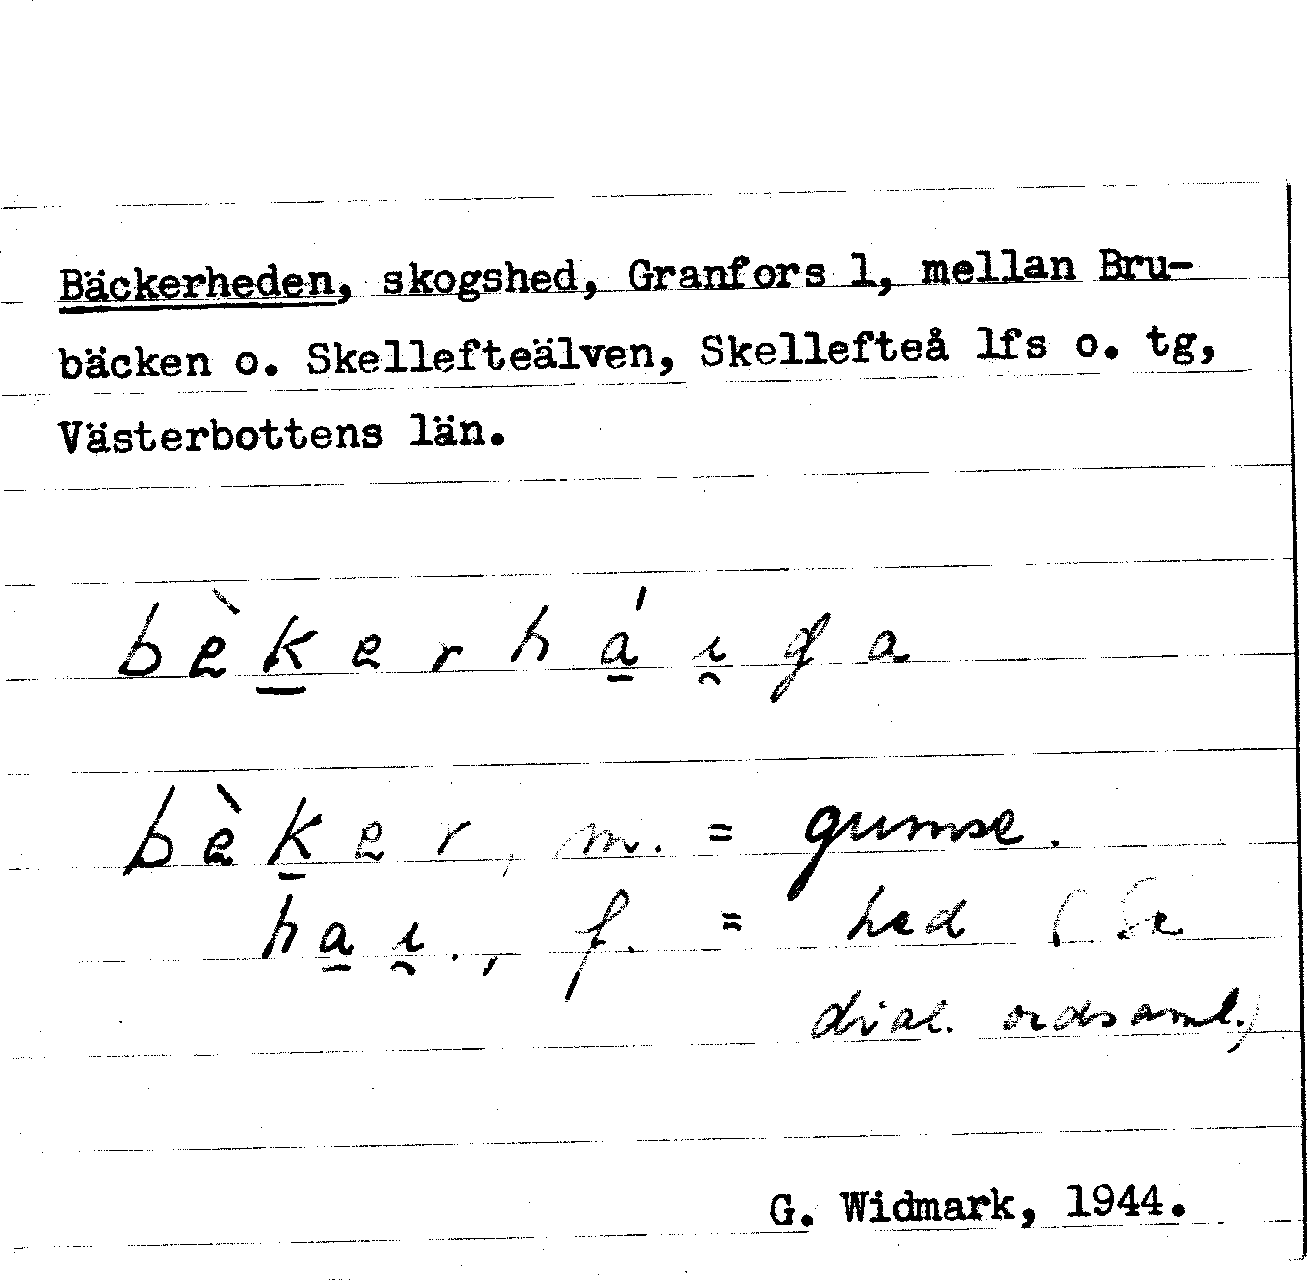 Bäckerheden, skogshed, Granfors 1, mellan Bru-
bäcken o. Skellefteälven, Skellefteå lfs o. tg,
Västerbottens län.
bèk̲erhá̲ı̯ga
bèk̲er, m. = gumse.
ha̲ı̯., f. = hed (Se
dial. ordsaml.)
G. Widmark, 1944.